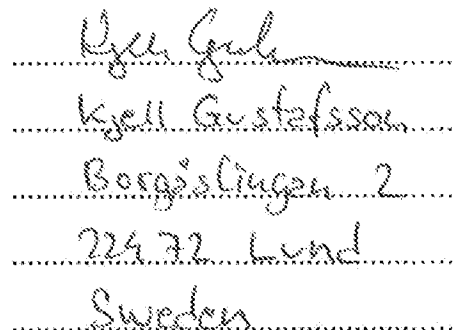 Kjell Gustafsson
Borgåslingan 2
224 72 Lund
Sweden